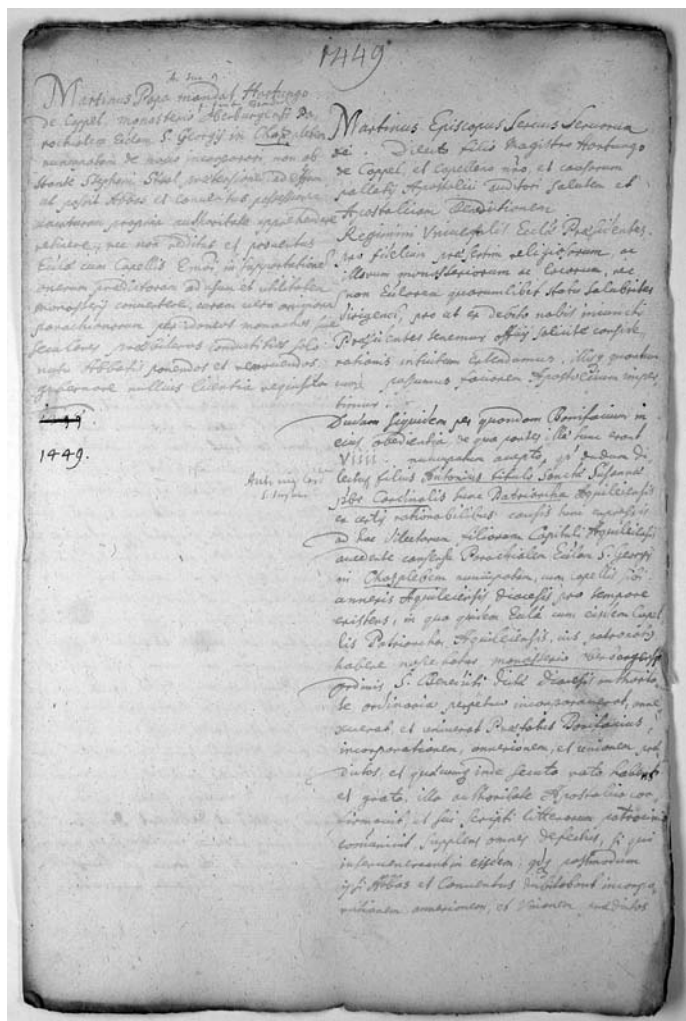 1449
Martinus Papa mandat Hartungo
de Cappel, monasterio Oberburgensi Pa
rochialem Eccl̃am S. Georgij in Chazpleben
nuncupatam de novo incorporari non ob
stante Stephani praetensione ad effectum
ut possit Abbas et conventus possessionem
earumdem propria authoritate apprehendere
retinere; nec non reditus et proventus
Eccl̃ae cum Capellis Emõri, in supportatione
onerum praedictorum ad usum et utilitatem
monasterij convertere, curam vero
parochianorum per idoneos monachos sive
seculares praesbiteros conductitios solo
nutu Abbatis ponendos et removendos
gubernare nullius licentia requisita
1449.
Martinus Episcopus Servus Servorum
dei. Dilecto filio Magistro Hartungo
de Cappel, et Capellano nr̃o, et causarum
pallatij Apostolici auditori salutem et
Apostolicam Benedictionem
Regimini Universalis Eccl̃ae Praesidentes,
pro fidelium praesertim religiosorum, ac
illorum monasteriorum ac locorum, nec
non Eccl̃arum quorumlibet statu salubriter
dirigendi, pro ut ex debito nobis iniuncti
Praesidentes tenemur officij solicite conside
rationis intuitum extendamus, illisq quantum
possumus favorem Apostolicum imper
timur.
Dudum siquidem per quondam Bonifacium in
eius obedientia de qua partes illae tunc erant
Viiii nuncupatum accepto, qd dudum di
lectus filius Antonius tituli Sanctae Susannae
prbr Cardinalis tunc Patriarcha Aquileiensis
ex certis rationabilibus causis tunc expressis
ad hoc dilectorum filiorum Capituli Aquileiensis
accedente consensu Parochialem Eccl̃am S. Georgij
in Chazpleben nuncupatam, cum capellis sibi
annexis Aquileiensis diocesis pro tempore
existens, in qua quidem Eccl̃a cum eisdem Capel
lis Patriarcha Aquileiensis, ius patronatus
habere noscebatur monasterio Oberburgensi
ordinis S. Benedicti dictae diocesis authorita
te ordinaria perpetuo incorporaverat, anne
xuerat, et univerat Praefatus Bonifacius,
incorporationem, annexionem, et unionem prae
dictas, et quaecumq inde secuta rata habens
et grata, illa authoritate Apostolica con
firmavit, et sui scripti litterarum patrocinio
communivit, supplens omnes defectus, si qui
intervenerant in eisdem; qd postmodum
ijsi Abbas et Conventus dubitabant incorpo
rationem annexionem, et Unionem praedictas